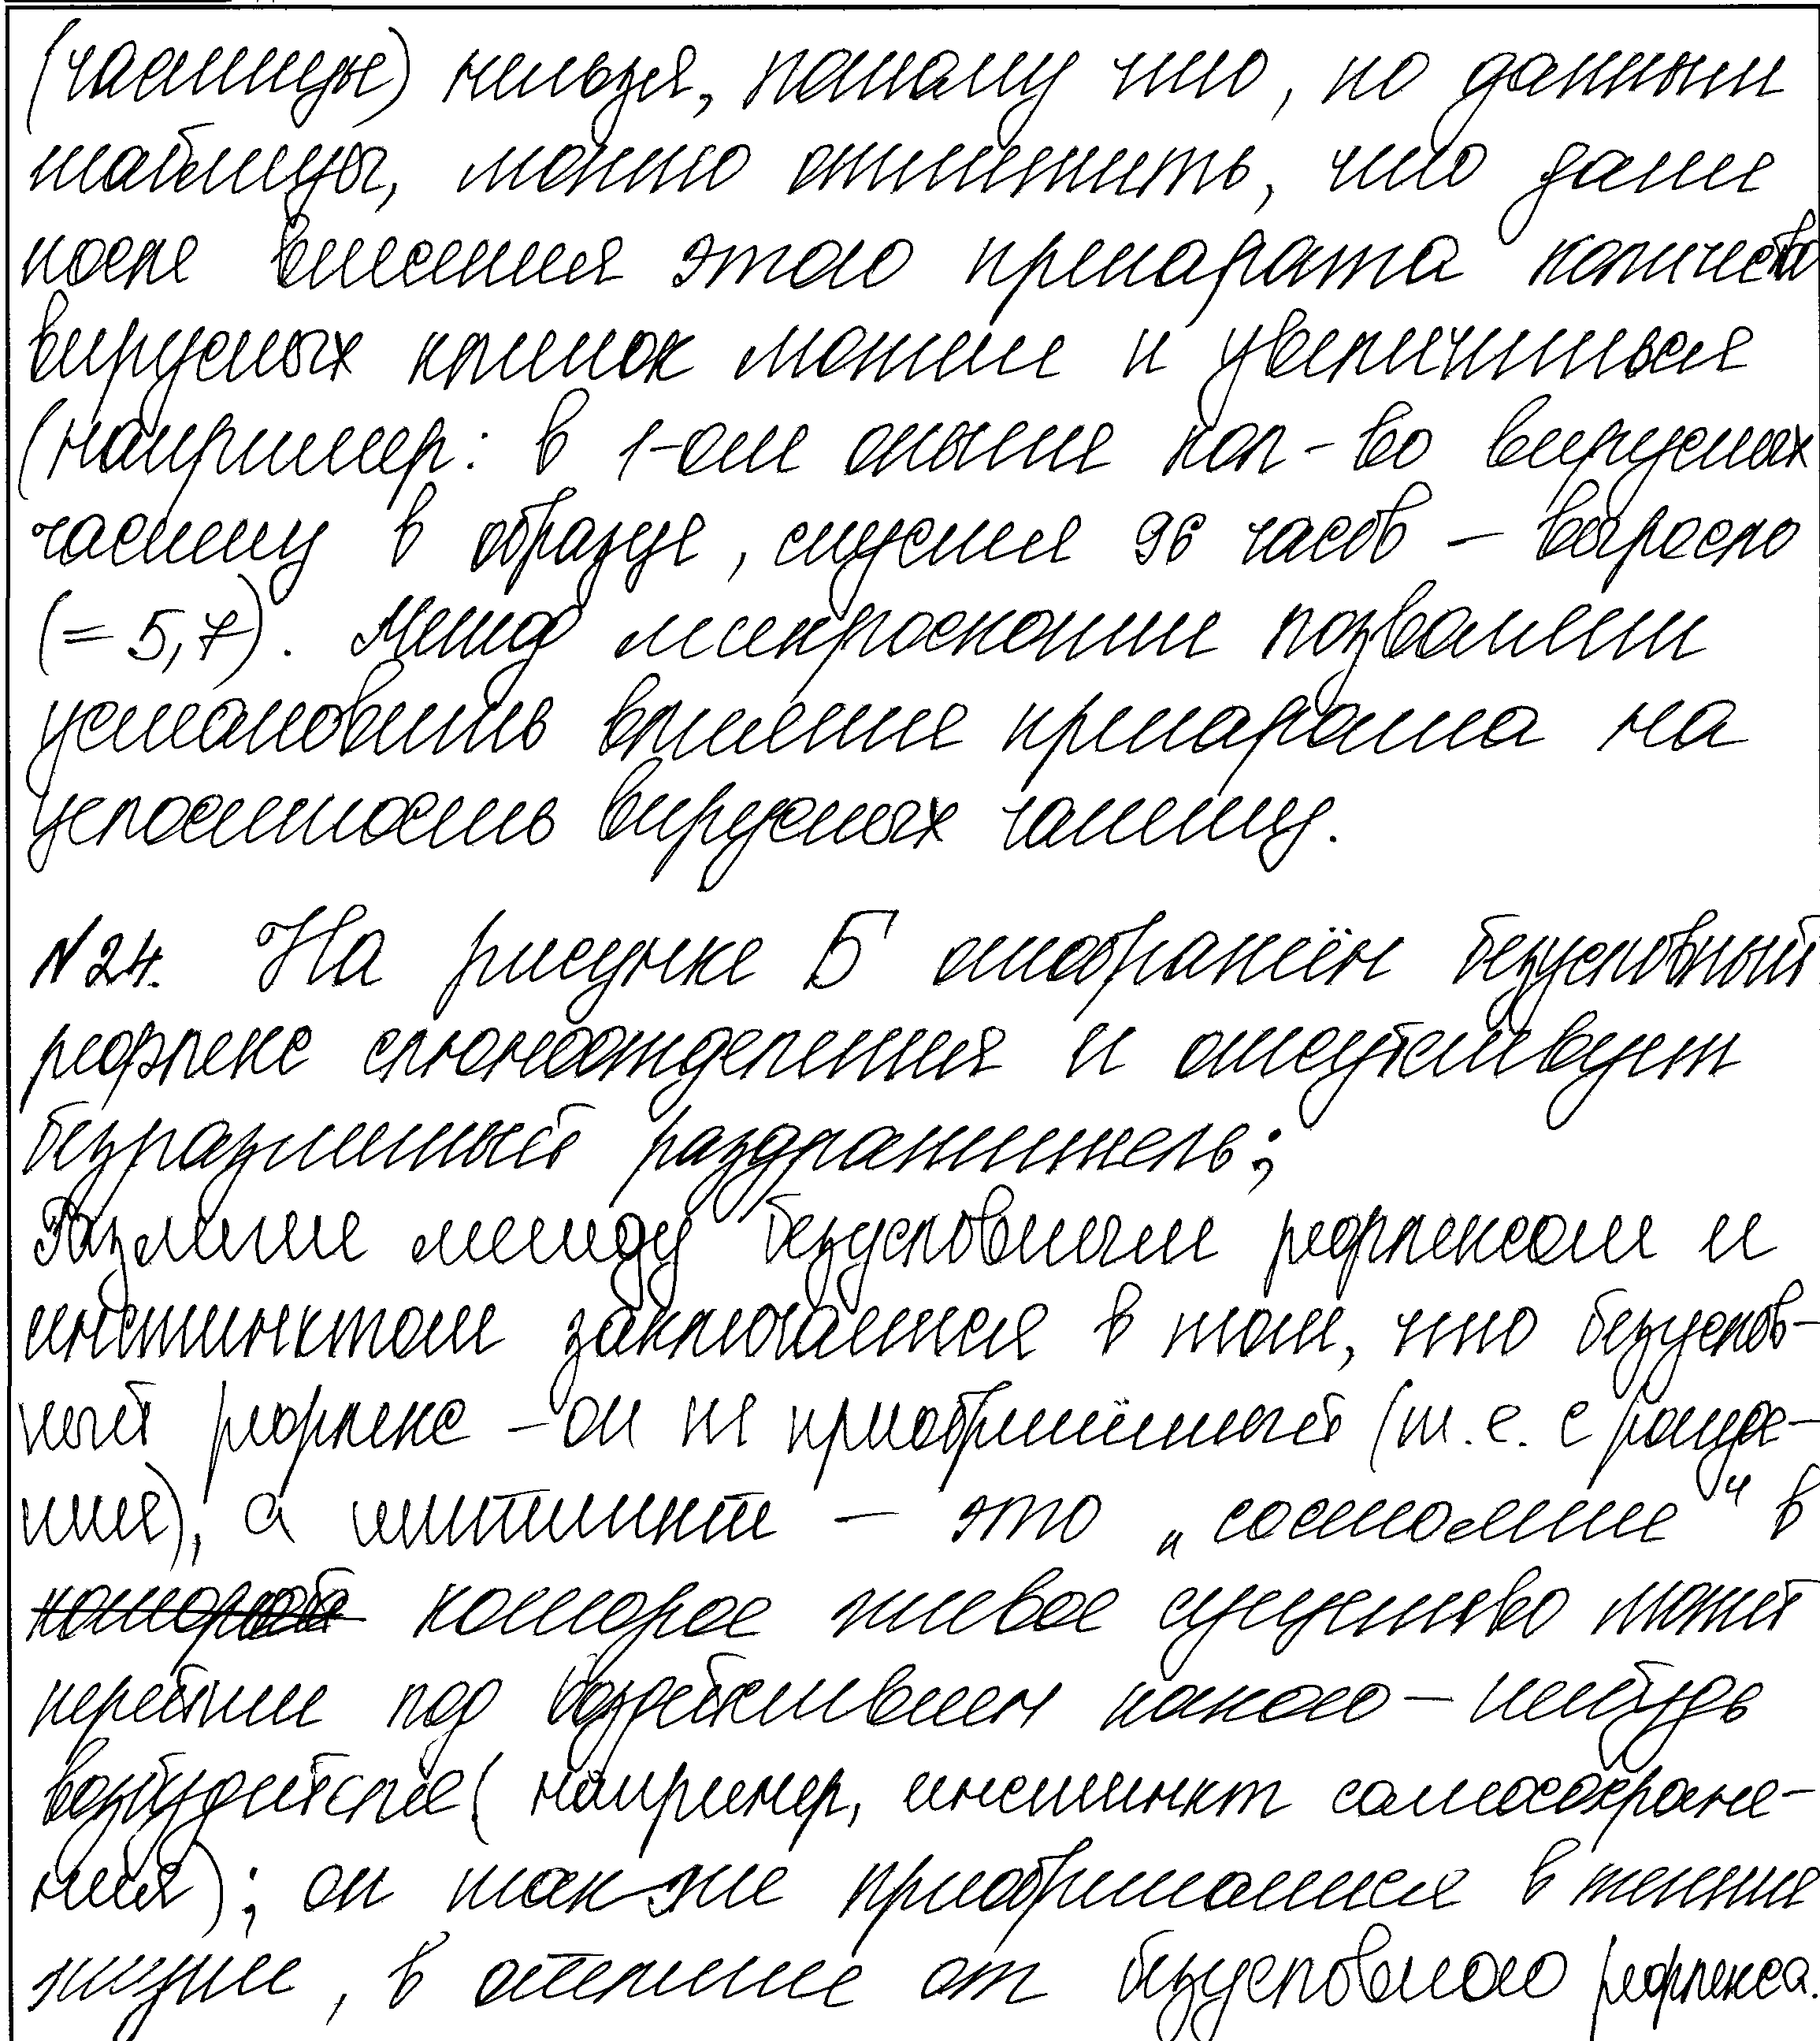 (частицы) нельзя, потому что, по данным
таблицы, можно отметить, что даже
после внесения этого препарата количество
вирусных клеток может и увеличиться
(например: в 1-ом опыте кол-во вирусных
частиц в образце, спустя 96 часов – выросло
(= 5,7). Метод микроскопии позволяет
установить влияние препарата на
целостность вирусных частиц.
№24. На рисунке Б отображён безусловный
рефлекс слюноотделения и отсутствует
безразличный раздражитель;
Различие между безусловным рефлексом и
инстинктом заключается в том, что безуслов-
ный рефлекс – он не приобретённый (т.е. с рожде-
ния), а инстинкт – это „состояние" в
которое живое существо может
перейти под воздействием какого-нибудь
возбудителя (например, инстинкт самосохране-
ния); он так же приобретается в течение
жизни, в отличие от безусловного рефлекса.